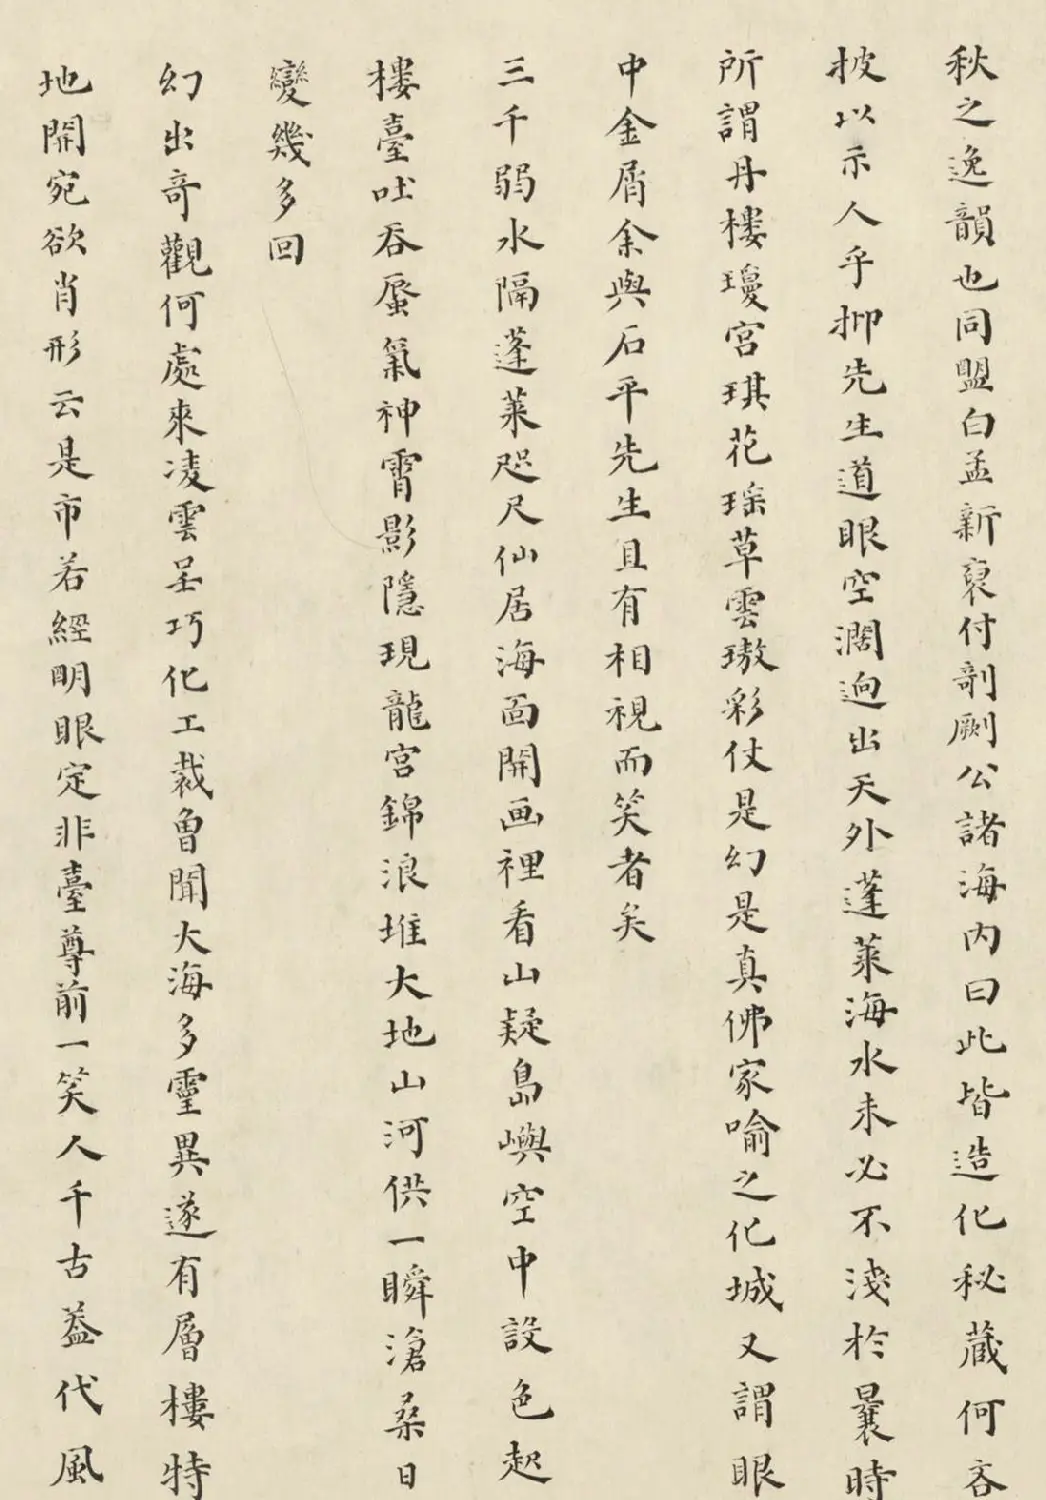 秋之逸韻也同盟白孟新裒付剞劂公諸海内曰此皆造化秘蔵何吝
披以示人乎抑先生道眼空濶逈出天外蓬萊海水未必不淺於曩時
所謂丹樓瓊宮琪花瑶草雲璈彩仗是幻是真佛家喻之化城又謂眼
中金屑余與石平先生且有相視而笑者矣
三千弱水隔蓬萊咫尺仙居海面開画裡看山疑島嶼空中設色起
樓臺吐吞蜃氣神霄影隱現龍宮錦浪堆大地山河供一瞬滄桑日
變幾多回
幻出奇觀何處來凌雲呈巧化工裁曾聞大海多靈異遂有層樓特
地開宛欲肖形云是市若經明眼定非臺尊前一笑人千古葢代風